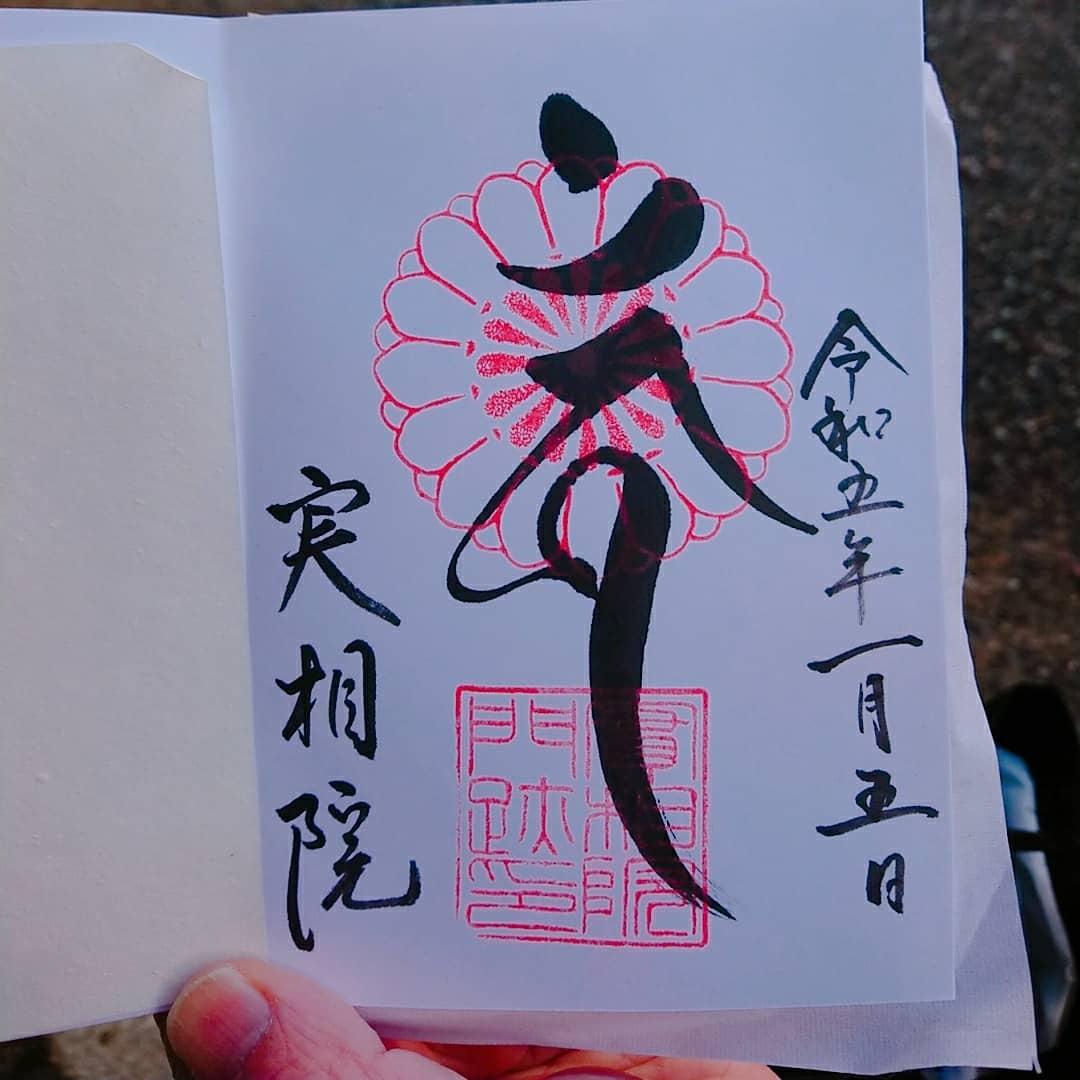 令和五年一月五日
實相院
門跡印
実相院